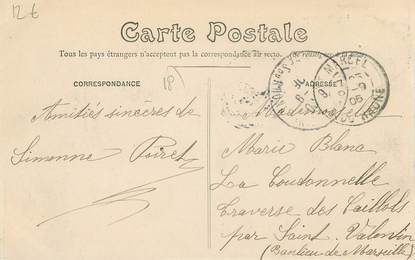 12 €
Carte Postale
Tous les pays étrangers n'acceptent pas la correspondance au recto.
CORRESPONDANCE
ADRESSE
Amitiés sincères de
Simonne Poiret
Mademoiselle
Marie Blanc
La Coutonnelle
Traverse des Caillols
par Saint-Valentin
(Banlieue de Marseille)